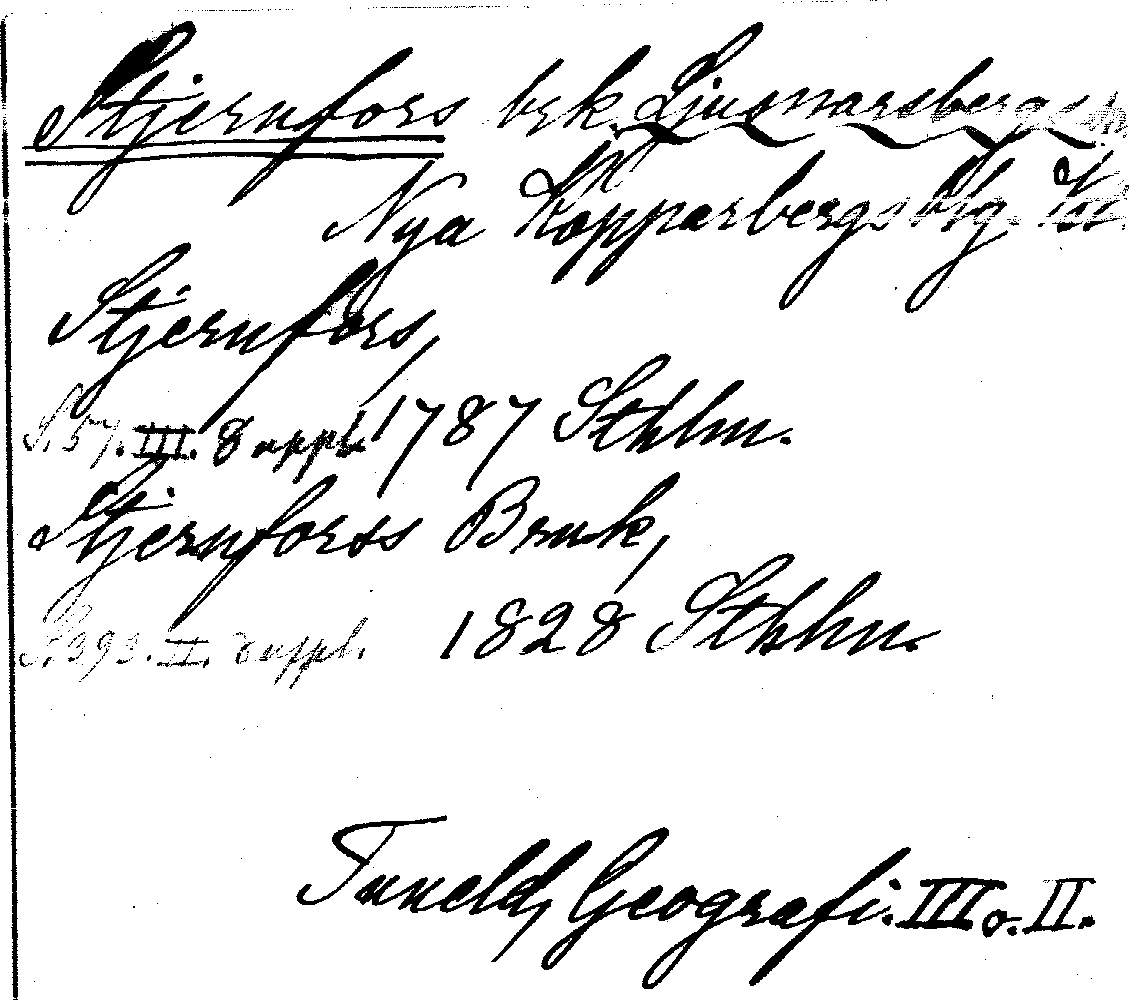 Stjernfors brk. Ljusnarsbergs
Nya Kopparbergs
Stjernfors,
S. 57. III. Duppl. 1787 Sthlm.
Stjernforss Bruk,
S. 393. II. Duppl. 1828 Sthlm.
Tuneld, Geografi. III o. II.